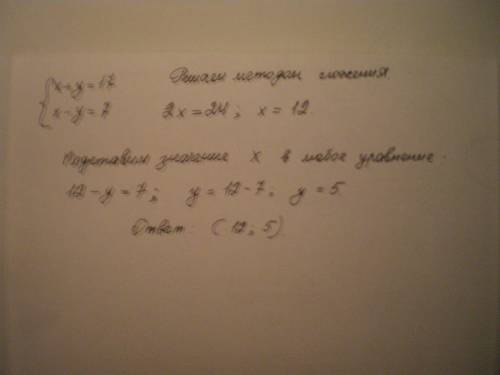 x+y=17 Решаем методом сложения.
x-y=7 2x=24; x=12.
Подставим значение x в любое уравнение.
12-y=7; y=12-7; y=5.
Ответ: (12; 5).